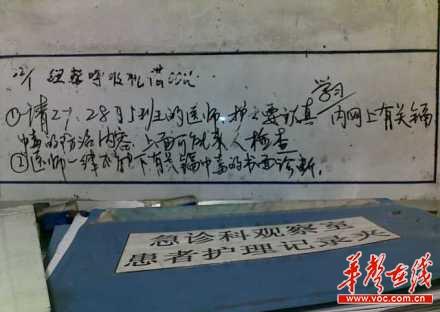 ①请27、28号上班的医师、护士要认真学习内网上有关镉
中毒的防治内容，上面可能来人检查
②医师一律不能下有关镉中毒的书面诊断。
急诊科观察室
患者护理记录夹
华声在线
www.voc.com.cn